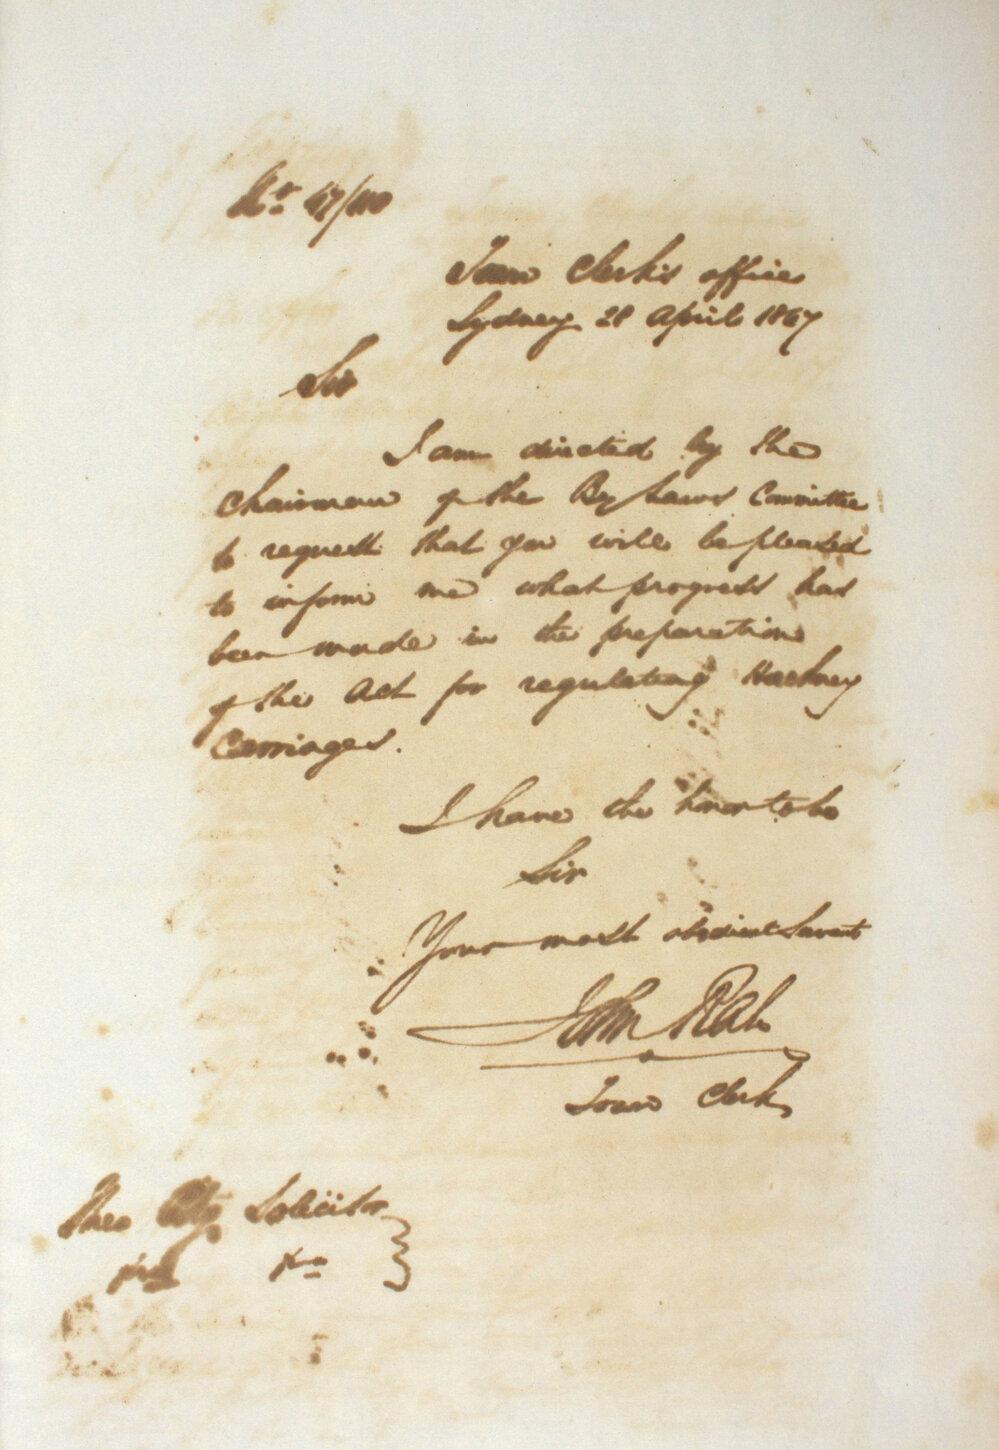 No. 47/110
Town Clerk's office
Sydney 28 April 1847
Sir
I am directed by the
Chairman of the By Laws Committee
to request that you will be pleased
to inform me what progress has
been made in the preparation
of the Act for regulating Hackney
Carriages.
I have the honor to be
Sir
Your most obedient Servant
John Rae
Town Clerk
The City Solicitor